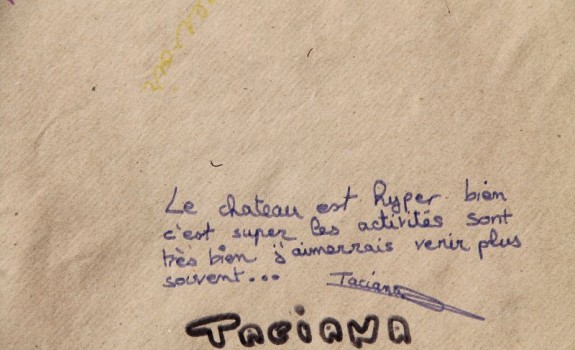 Le chateau est hyper bien
c'est super les activités sont
très bien j'aimerrais venir plus
souvent...
Taciana
TACIANA